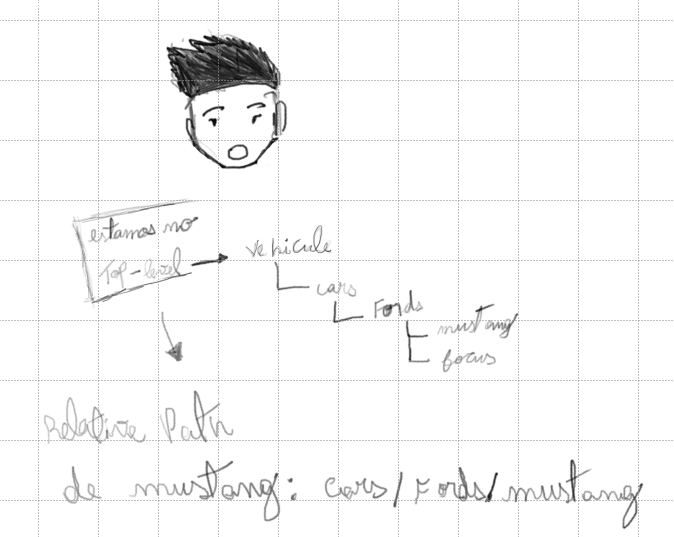 estamos no
Top-level
vehicule
cars
Fords
mustang
focus
Relative Path
de mustang: cars/Fords/mustang